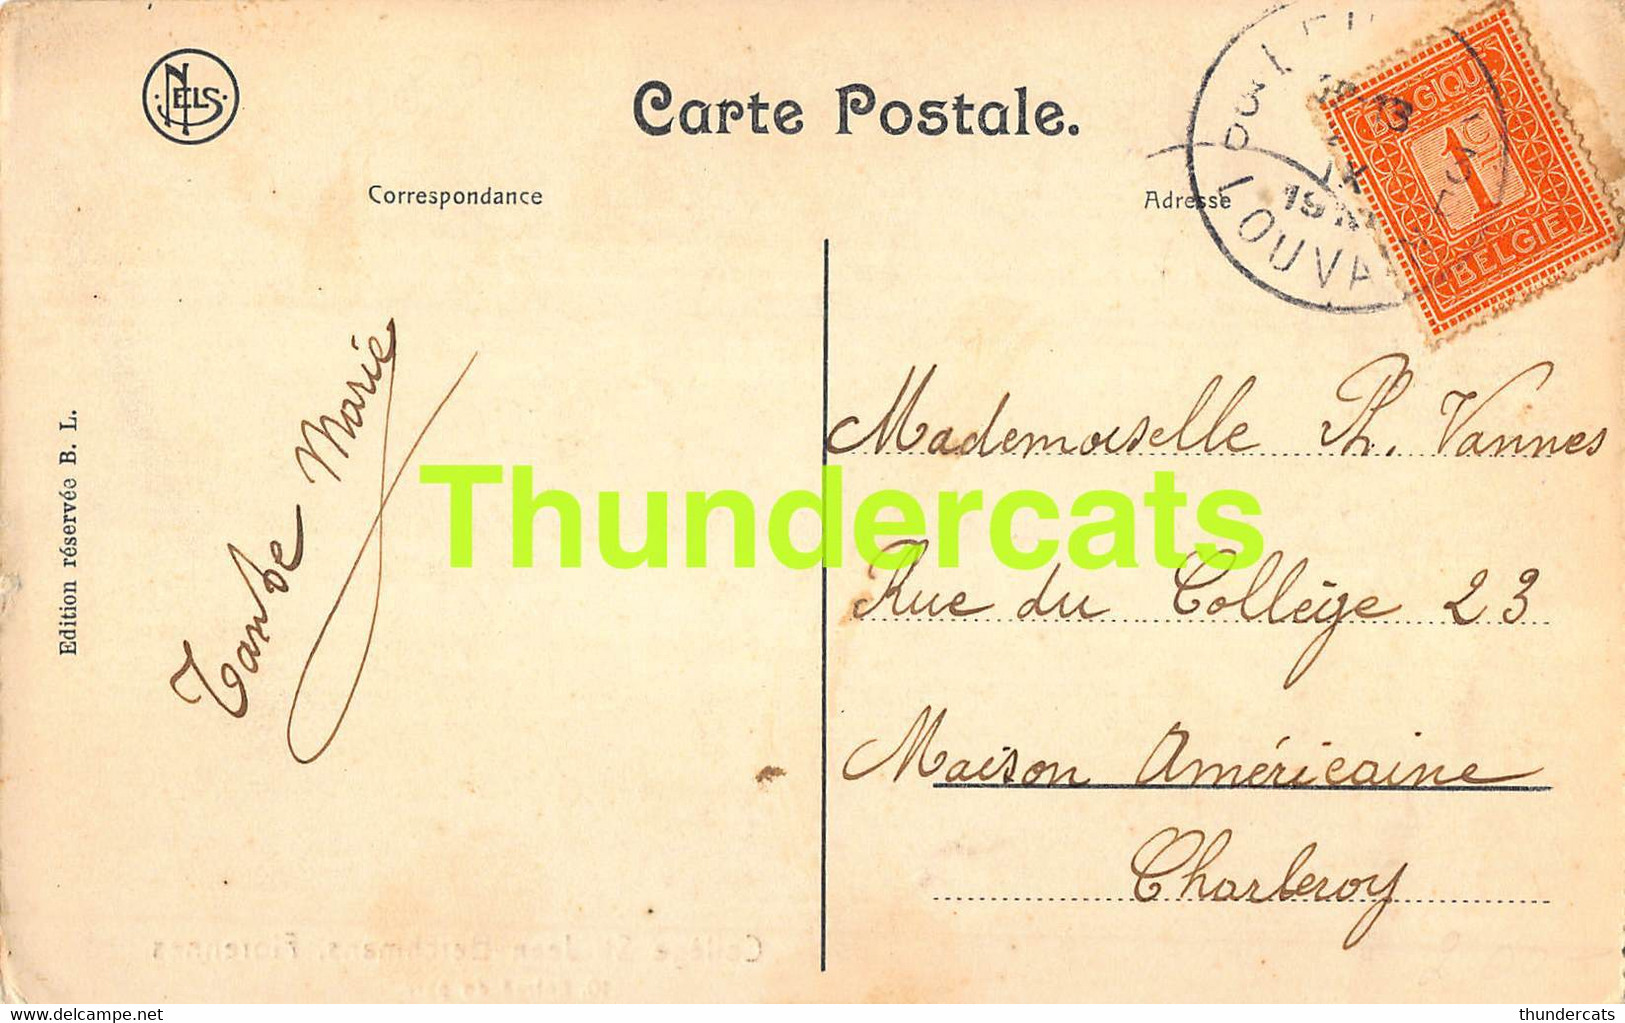 NELS
Carte Postale.
Correspondance
Adresse
LOUVA
BELGIQUE
1
BELGIË
Edition réservée B. L.
Tante Marie
Mademoiselle Ph. Vannes
Rue du Collège 23
Maison Américaine
Charleroy
Thundercats
Collège St Jean Berchmans, Florennes
delcampe.net
thundercats